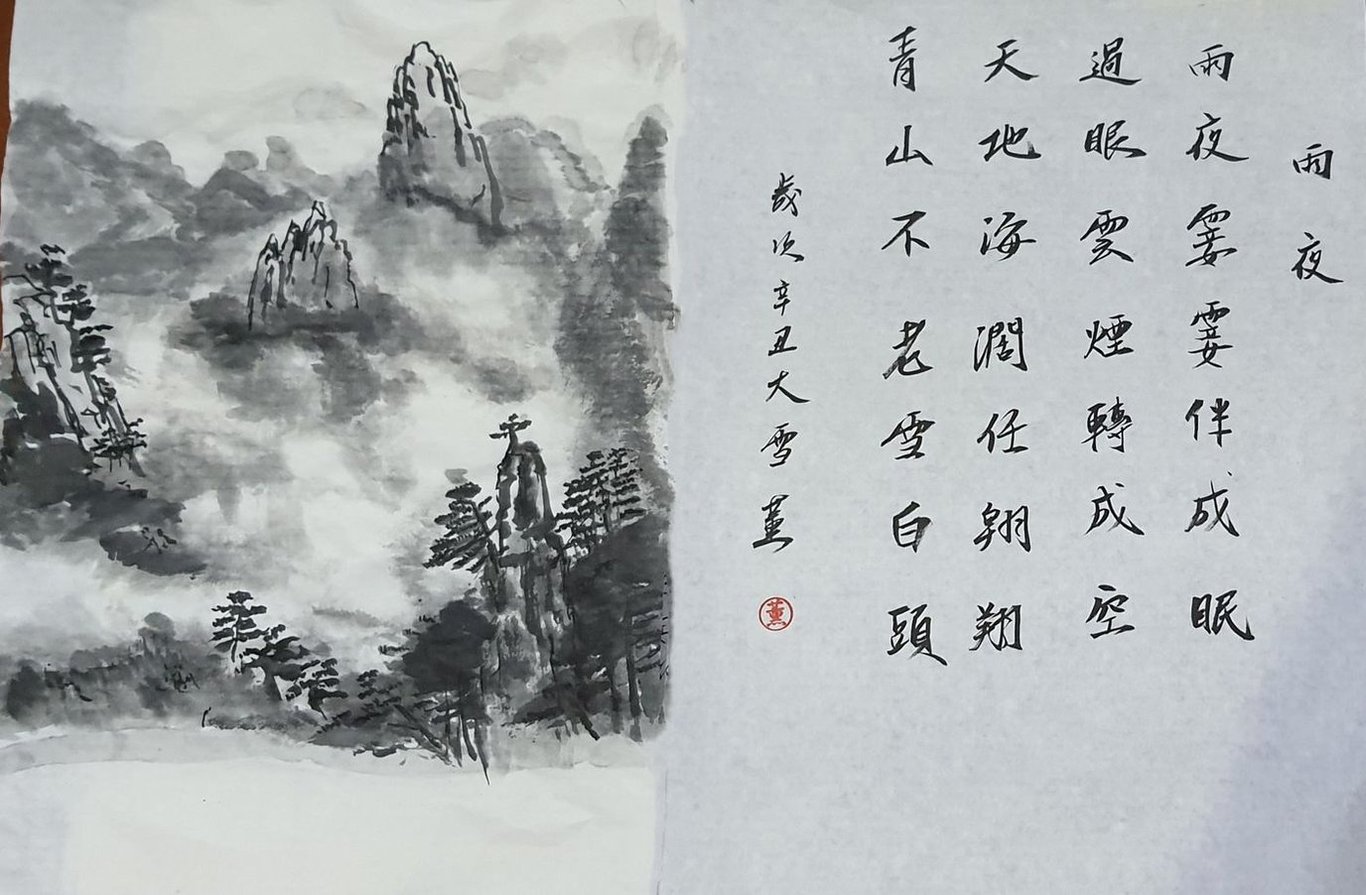 雨夜
雨夜霎霎伴成眠
過眼雲煙轉成空
天地海濶任翱翔
青山不老雪白頭
歲次辛丑大雪 薰
薰